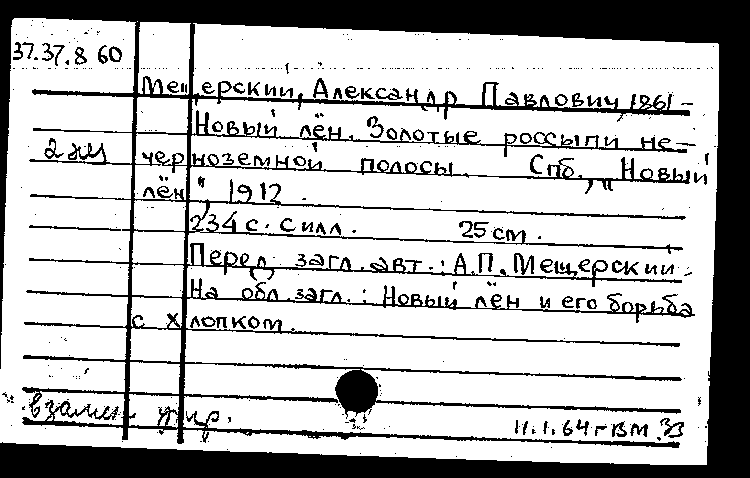 37.37.8 60
Мещерский, Александр Павлович, 1861-
Новый лён. Золотые россыпи не-
2 хи черноземной полосы. Спб., "Новый
лён", 1912.
234 с. с илл. 25 cm.
Перед загл. авт.: А.П. Мещерский.
На обл. загл.: Новый лён и его борьба
с хлопком.
взамен утр. 11.1.64 г ВМ ЗЗ